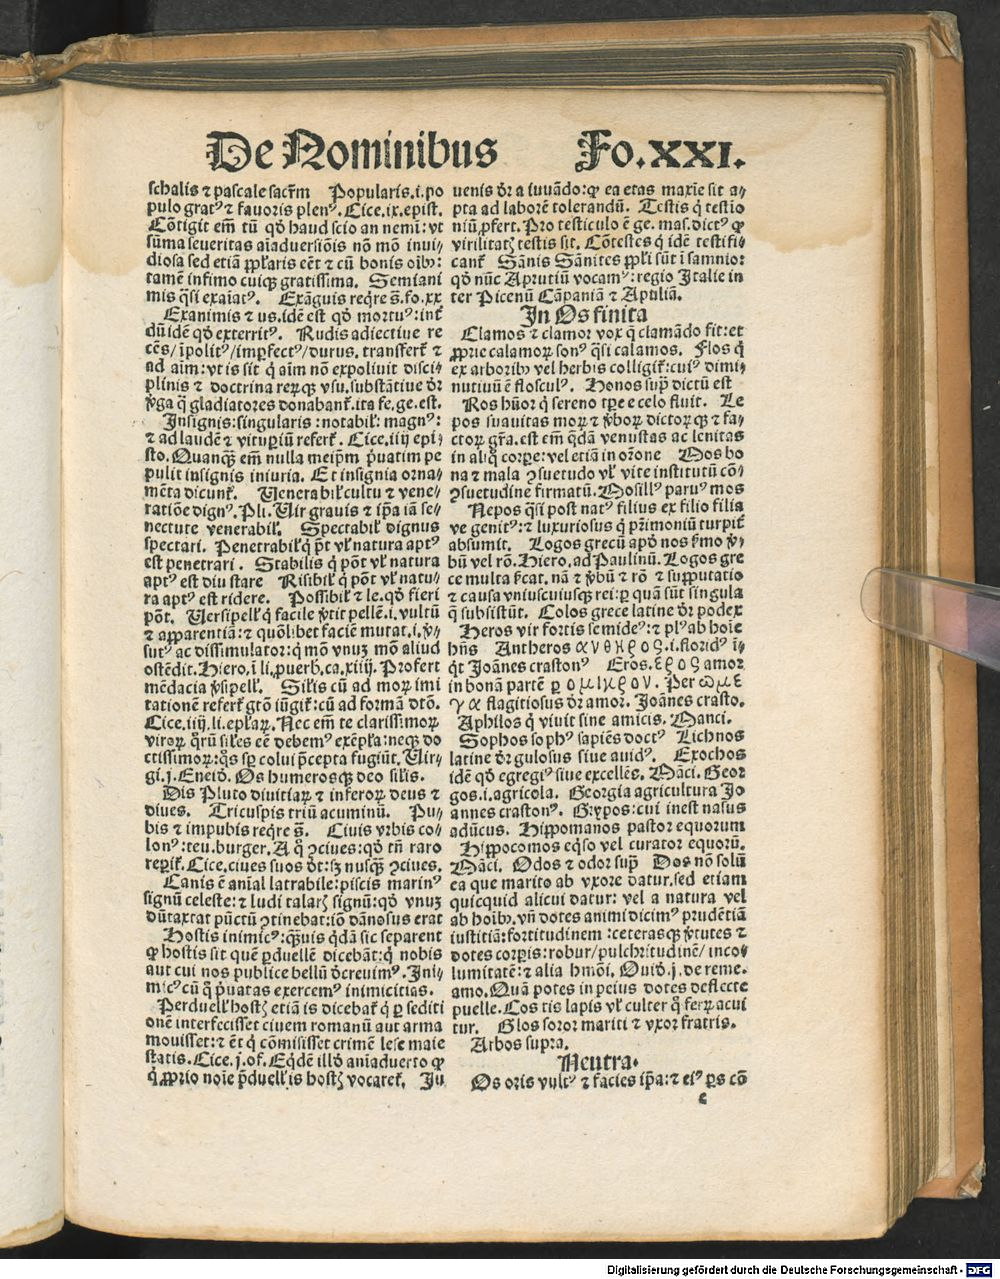 De Nominibus Fo.XXI.
schalis ⁊ pascale sacr̄m Popularis.i.po
pulo gratꝰ ⁊ fauoris plenꝰ. Cice.ix.epist.
Cōtigit em̄ tū qđ haud scio an nemi: vt
sūma seueritas aīaduersiōis nō mō inui⸗
diosa sed etiā pp̄laris eēt ⁊ cū bonis oībꝫ:
tamē infimo cuiqꝫ gratissima. Semiani
mis q̄si exaīatꝰ. Exāguis reqre s̄. fo.xx
Exanimis ⁊ us.idē est qđ mortuꝰ: int̄
dū idē qđ exterritꝰ. Rudis adiectiue re
cēs/īpolitꝰ/imꝑfectꝰ/durus. transfert̄ ⁊
ad aīm: vt is sit q̇ aīm nō expoliuit disci⸗
plinis ⁊ doctrina rerūqꝫ vsu. substātiue dr̄
v̄ga q̄ gladiatores donabant̄. ita fe.ge.est.
Insignis: singularis: notabil̓: magnꝰ:
⁊ ad laudē ⁊ vituꝑiū refert̄. Cice.iiij epi⸗
sto. Quanqꝫ em̄ nulla meip̄m p̄uatim pe
pulit insignis iniuria. Et insignia orna⸗
mēta dicunt̄. Uenerabil̓ cultu ⁊ vene⸗
ratiōe dignꝰ. Pli. Uir grauis ⁊ ip̄a iā se⸗
nectute venerabil̓. Spectabil̓ dignus
spectari. Penetrabil̓ q̇ p̄t vl̓ natura aptꝰ
est penetrari. Stabilis q̇ pōt vl̓ natura
aptꝰ est diu stare Risibil̓ q̇ pōt vl̓ natu⸗
ra aptꝰ est ridere. Possibil̓ ⁊ le.qđ fieri
pōt. Uersipell̓ q̇ facile v̄tit pellē.i.vultū
⁊ apparentiā: ⁊ quōlibet faciē mutat.i.v̄⸗
sutꝰ ac dissimulator: q̇ mō vnuꝫ mō aliud
ostēdit. Hiero.ī li.ꝓuerb.ca.xiiij. Profert
mēdacia v̄sipell̓. Sil̓is cū ad moꝝ imi
tationē refert̄ gtō iūgit̄: cū ad formā dtō.
Cice.iiij.li.epl̓aꝝ. Nec em̄ te clarissimoꝝ
viroꝝ qrū sil̓es eē debemꝰ exēpla: neqꝫ do
ctissimoꝝ: q̄s sꝑ colui p̄cepta fugiūt. Uir⸗
gi.j.Eneiđ. Os humerosqꝫ deo sil̓is.
Dis Pluto diuitiaꝝ ⁊ inferoꝝ deus ⁊
diues. Tricuspis triū acuminū. Pu⸗
bis ⁊ impubis reqre s̄. Ciuis vrbis co⸗
lonꝰ: teu. burger. A q̇ ꝯciues: qđ tn̄ raro
reperit̄. Cice.ciues suos dt̄: sꝫ nusqꝫ ꝯciues.
Canis ē aīal latrabile: piscis marinꝰ
signū celeste: ⁊ ludi talarꝭ signū: qđ vnuꝫ
dūtaxtat pūctū ꝯtinebat: iō dānosus erat
Hostis inimicꝰ: qꝫuis qdā sic separent
ꝙ hostis sit quē ꝑduellē dicebāt: q̇ nobis
aut cui nos publice bellū đcreuimꝰ. Ini⸗
micꝰ cū q̇ p̄uatas exercemꝰ inimicitias.
Perduell̓ hostꝭ etiā is dicebat̄ q̇ ꝑ sediti
onē interfecisset ciuem romanū aut arma
mouisset: ⁊ ēt q̇ cōmisisset crimē lese maie
statis. Cice.j.of. Eqdē illđ anīaduerto ꝙ
q̇ ꝓprio noīe p̄duell̓is hostꝭ vocaret̄. Ju
uenis dr̄ a iuuādo: ꝙ ea etas maxīe sit a⸗
pta ad laborē tolerandū. Testis q̇ testīo
niū ꝓfert. Pro testiculo ē ge.mas.dictꝰ ꝙ
virilitatꝭ testis sit. Cōtestes q̇ idē testifi⸗
cant̄ Sānis Sānites ppl̓i sūt ī samnio:
qđ nūc Aprutiū vocamꝰ: regio Italie in
ter Picenū Cāpaniā ⁊ Apuliā.
In Os finita
Clamos ⁊ clamor vox q̄ clamādo fit: et
ꝓprie calamoꝝ sonꝰ q̄si calamos. Flos q̇
ex arboribꝫ vel herbis colligit̄: cuiꝰ dimi⸗
nutiuū ē flosculꝰ. Honos supͣ dictū est
Ros hūor q̇ sereno tꝑe e celo fluit. Le
pos suauitas moꝝ ⁊ v̄boꝝ dictoꝝqꝫ ⁊ fa⸗
ctoꝝ gr̄a. est em̄ qdā venustas ac lenitas
in aliq̇ corꝑe: vel etiā in or̄one Mos bo
na ⁊ mala ꝯsuetudo vl̓ vite institutū cō⸗
ꝯsuetudine firmatū. Mosillꝰ paruꝰ mos
Nepos q̄si post natꝰ filius ex filio filia
ve genitꝰ: ⁊ luxuriosus q̇ p̄rimoniū turpit̄
absumit. Logos grecū apđ nos ẜmo v̄⸗
bū vel rō. Hiero.ad Paulinū. Logos gre
ce multa ẜcat. nā ⁊ v̄bū ⁊ rō ⁊ supputatio
⁊ causa vniuscuiusqꝫ rei: ꝑ quā sūt singula
q̄ subsistūt. Colos grece latine dr̄ podex
Heros vir fortis semideꝰ: ⁊ plꝰ ab hoīe
hn̄s Antheros ανθηρος.i.floridꝰ ī⸗
q̇t Joānes crastonꝰ Eros. ερος amor
in bonā partē ꝑ ομικρον. Per ωμε
γα flagitiosus dr̄ amor. Joānes crasto.
Aphilos q̇ viuit sine amicis. Manci.
Sophos sophꝰ sapiēs doctꝰ Lichnos
latine dr̄ gulosus siue auidꝰ. Exochos
idē qđ egregiꝰ siue excellēs. Māci. Geor
gos.i.agricola. Georgia agricultura Jo
annes crastonꝰ. Grypos: cui inest nasus
adūcus. Hippomanos pastor equorum
Hippocomos eq̇so vel curator equorū.
Māci. Odos ⁊ odor supͣ Dos nō solū
ea que marito ab vxore datur. sed etiam
quicquid alicui datur: vel a natura vel
ab hoībꝫ. vn̄ dotes animi dicimꝰ prudētiā
iustitiā: fortitudinem: ceterasqꝫ v̄tutes ⁊
dotes corꝑis: robur/pulchritudinē/inco⸗
lumitatē: ⁊ alia hmōi. Ouiđ.j.de reme.
amo. Quā potes in peius dotes deflecte
puelle. Cos tis lapis vl̓ culter q̇ ferꝝ acui
tur. Glos soror mariti ⁊ vxor fratris.
Arbos supra.
Neutra.
Os oris vultꝰ ⁊ facies ip̄a: ⁊ eiꝰ ꝑs cō
c
Digitalisierung gefördert durch die Deutsche Forschungsgemeinschaft - DFG